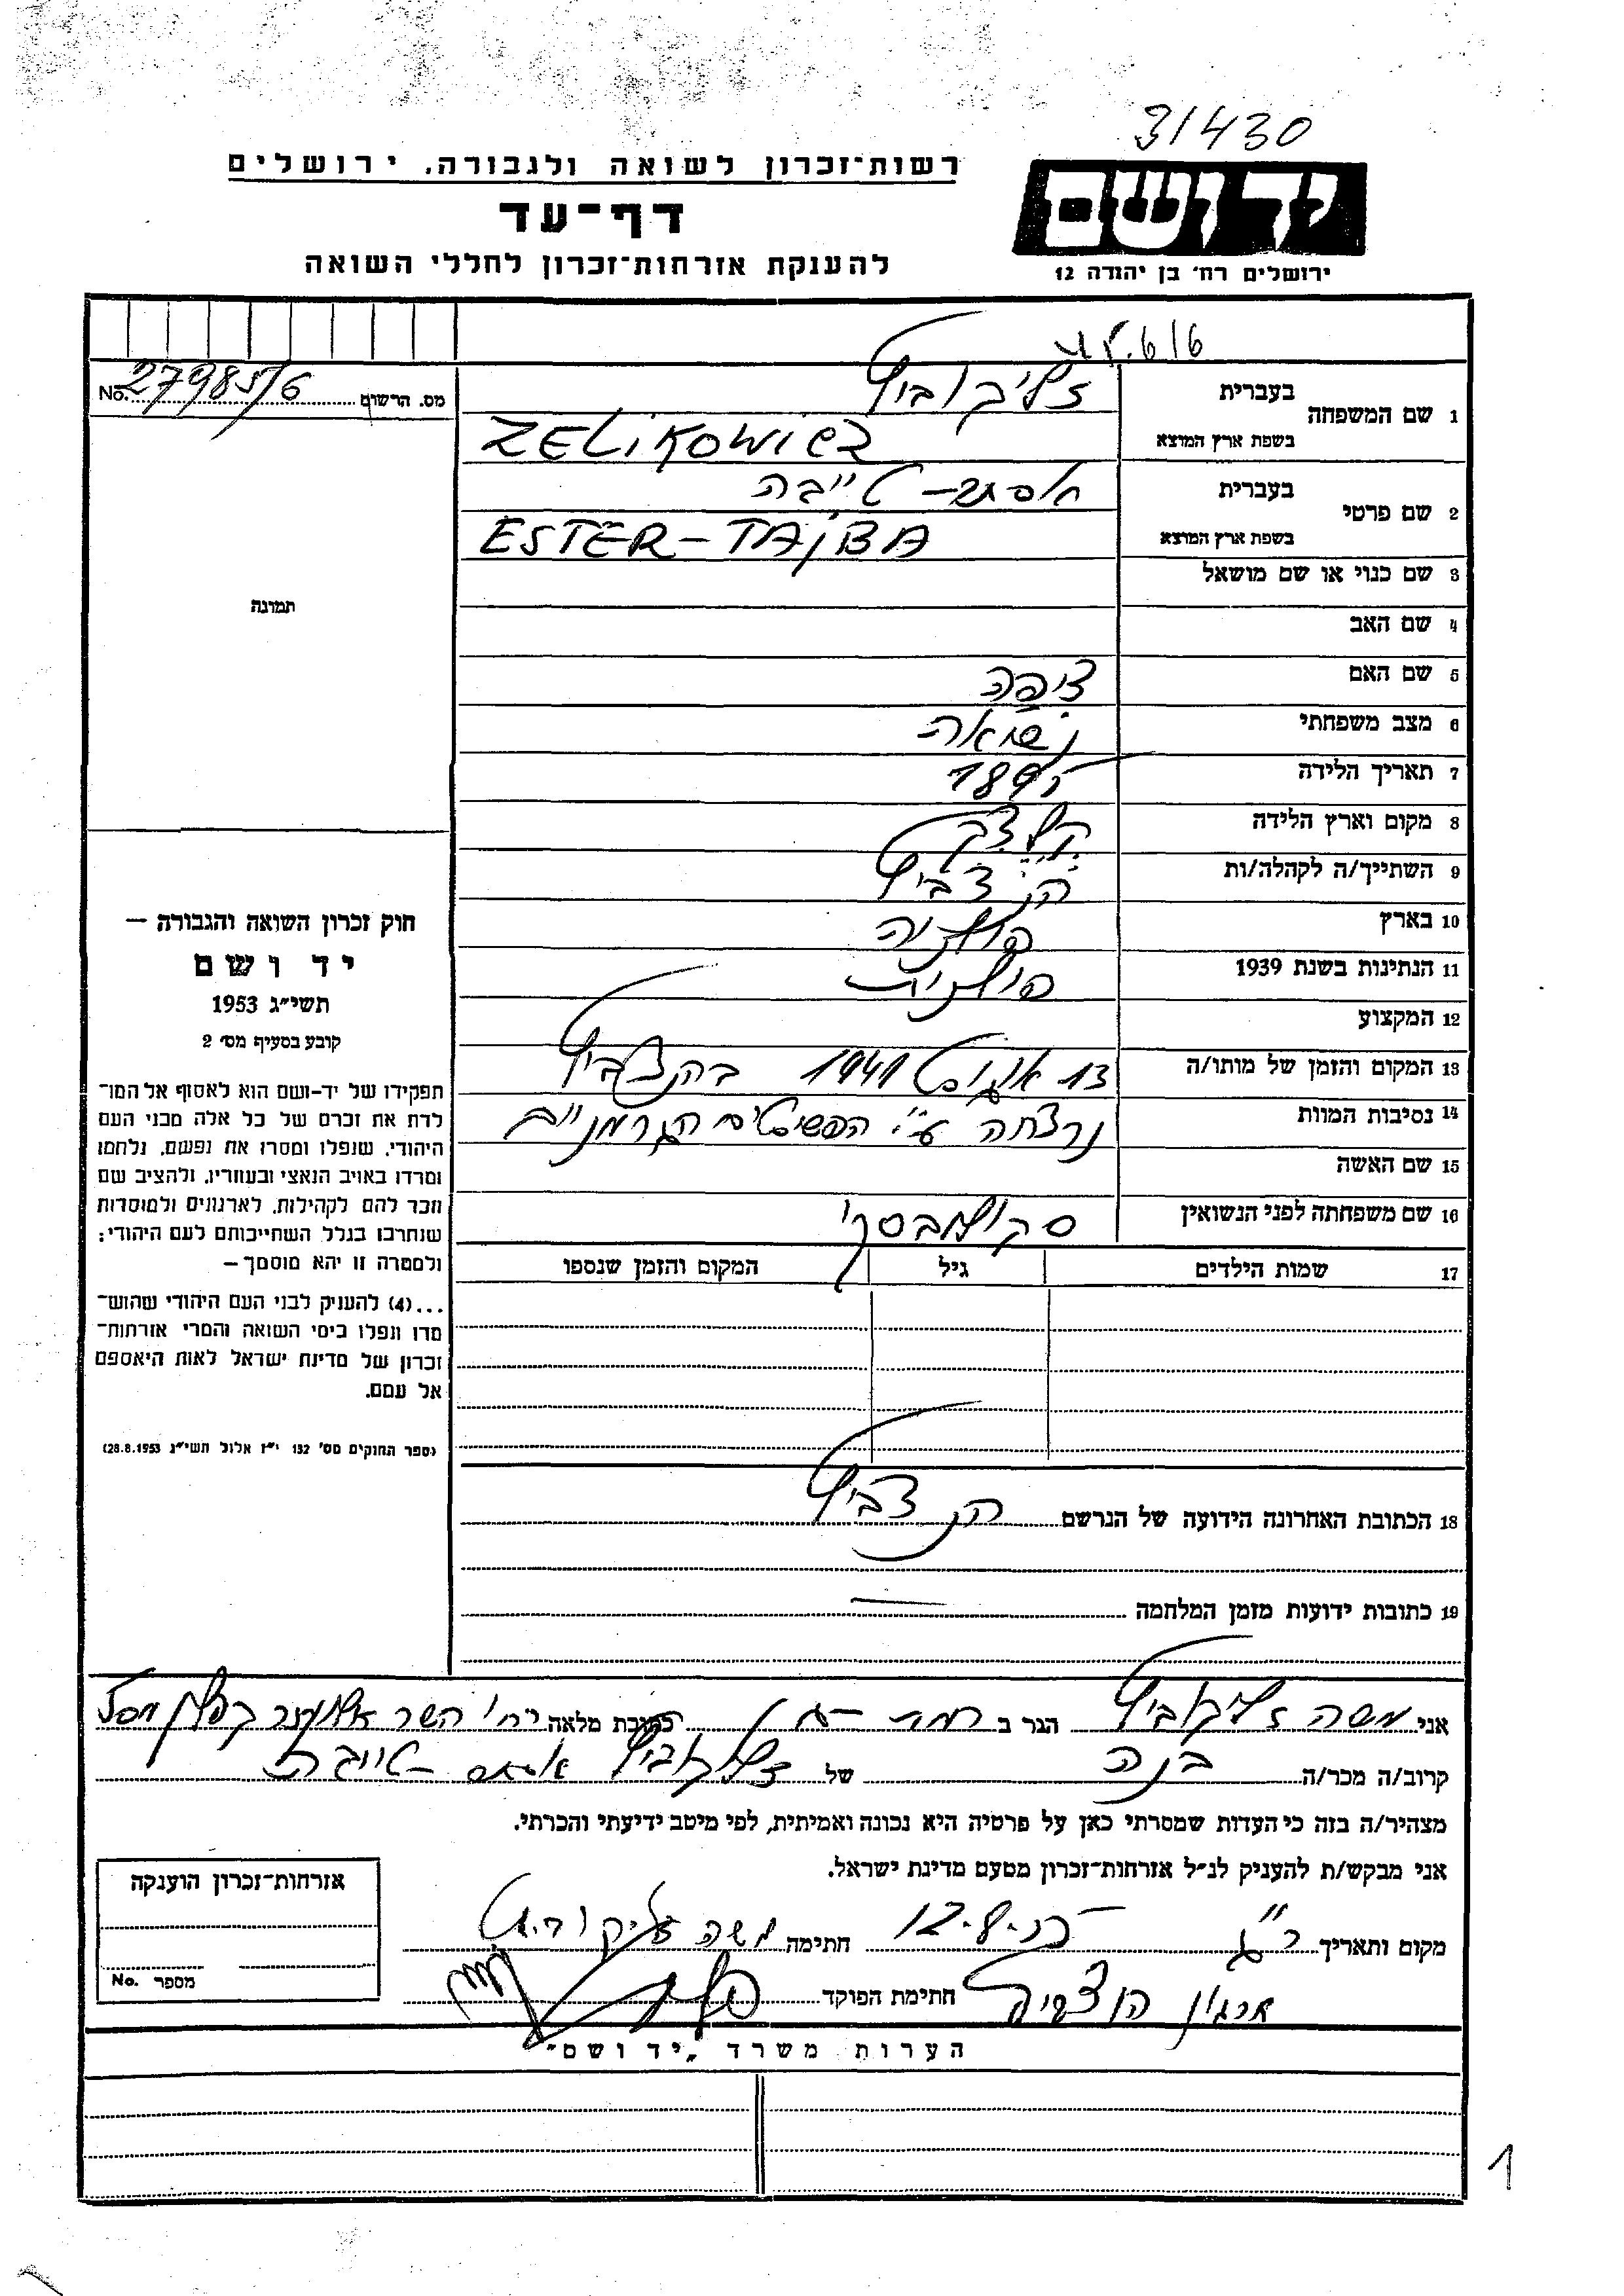 31430
רשות־זכרון לשואה ולגבורה, ירושלים
דף־עד
להענקת אזרחות־זכרון לחללי השואה
יד ושם
ירושלים רח' בן יהודה 12
No. 27985/6 מס. הרשום
1 שם המשפחה בעברית זליקוביץ
בשפת ארץ המוצא ZELIKOWICZ
2 שם פרטי בעברית אסתר - טייבה
בשפת ארץ המוצא ESTER-TAJBA
3 שם כנוי או שם מושאל
4 שם האב
5 שם האם ציפה
6 מצב משפחתי נשואה
7 תאריך הלידה 1897
8 מקום וארץ הלידה
9 השתייך/ה לקהלה/ות
10 בארץ פולניה
11 הנתינות בשנת 1939 פולנית
12 המקצוע
13 המקום והזמן של מותו/ה 13 אוגוסט 1941
14 נסיבות המוות נרצחה ע"י הפשיסטים הגרמניים
15 שם האשה
16 שם משפחתה לפני הנשואין סקולובסקי
17 שמות הילדים גיל המקום והזמן שנספו
18 הכתובת האחרונה הידועה של הנרשם
19 כתובות ידועות מזמן המלחמה
תמונה
חוק זכרון השואה והגבורה –
יד ושם
תשי״ג 1953
קובע בסעיף מס' 2
תפקידו של יד-ושם הוא לאסוף אל המו־
לדת את זכרם של כל אלה מבני העם
היהודי, שנפלו ומסרו את נפשם, נלחמו
ומרדו באויב הנאצי ובעוזריו, ולהציב שם
וזכר להם לקהילות, לארגונים ולמוסדות
שנחרבו בגלל השתייכותם לעם היהודי;
ולמטרה זו יהא מוסמך –
...(4) להעניק לבני העם היהודי שהוש־
מדו ונפלו בימי השואה והמרי אזרחות־
זכרון של מדינת ישראל לאות היאספם
אל עמם.
(ספר החוקים מס' 132 י״ז אלול תשי״ג 28.8.1953)
אני משה זליקוביץ הגר ב רמת-גן כתובת מלאה רח' השר
קרוב/ה מכר/ה בנה של זליקוביץ אסתר - טייבה
מצהיר/ה בזה כי העדות שמסרתי כאן על פרטיה היא נכונה ואמיתית, לפי מיטב ידיעתי והכרתי.
אני מבקש/ת להעניק לנ״ל אזרחות־זכרון מטעם מדינת ישראל.
מקום ותאריך ר"ג חתימה משה זליקוביץ
חתימת הפוקד
אזרחות־זכרון הוענקה
מספר No.
הערות משרד „יד ושם"
1